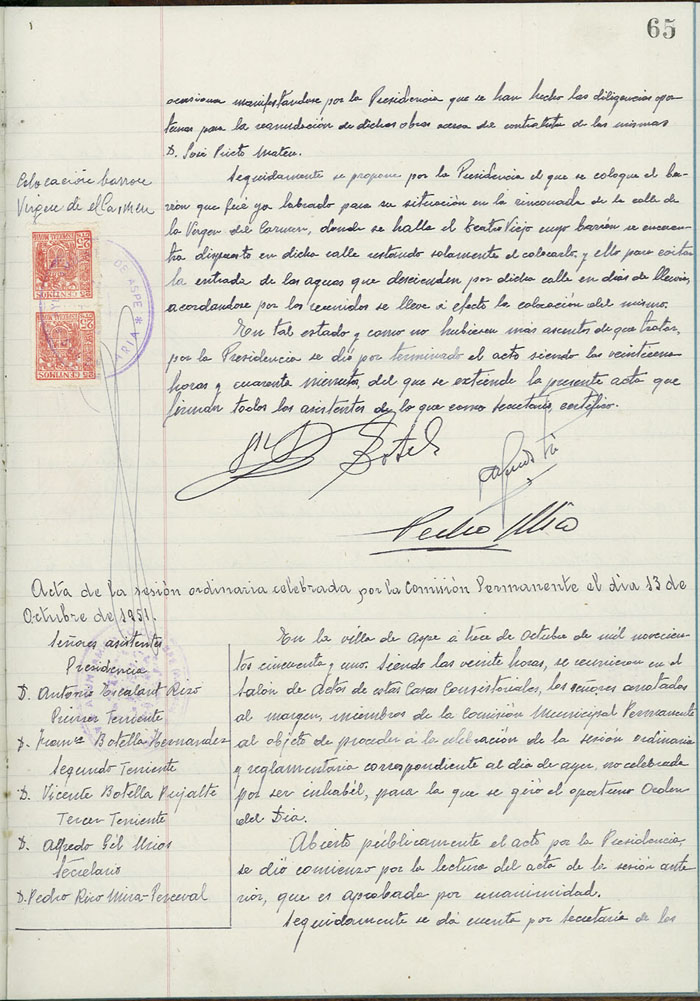 65
ocasiona manifestandose por la Presidencia que se han hecho las diligencias opor-
tunas para la reanudación de dichas obras acerca del contratista de las mismas
D. José Prieto Mateu.
Colocación barron
Virgen de el Carmen
Seguidamente se propone por la Presidencia el que se coloque el ba-
rrón que fué ya labrado para su situación en la rinconada de la calle de
la Virgen del Carmen, donde se halla el Teatro Viejo cuyo barrón se encuen-
tra dispuesto en dicha calle restando solamente el colocarlo, y ello para evitar
la entrada de las aguas que descienden por dicha calle en dias de lluvia,
acordandose por los reunidos se lleve á efecto la colocación del mismo.
En tal estado y como no hubiesen más asuntos de que tratar,
por la Presidencia se dió por terminado el acto siendo las veintiuna
horas y cuarenta minutos, del que se extiende la presente acta que
firman todos los asistentes de lo que como secretario, certifico.
25 CENTIMOS
25 CENTIMOS
DE ASPE
Botella
Pedro Rico
Acta de la sesión ordinaria celebrada por la Comisión Permanente el dia 13 de
Octubre de 1951.
Señores asistentes
Presidencia
D. Antonio Escalant Rizo
Primer Teniente
D. Franco Botella Hernandez
Segundo Teniente
D. Vicente Botella Pujalte
Tercer Teniente
D. Alfredo Gil Mirios
Secretario
D. Pedro Rico Mira-Perceval
En la villa de Aspe á trece de Octubre de mil novecien-
tos cincuenta y uno. Siendo las veinte horas, se reunieron en el
Salón de Actos de estas Casas Consistoriales, los señores anotados
al margen, miembros de la Comisión Municipal Permanente
al objeto de proceder á la celebración de la sesión ordinaria
y reglamentaria correspondiente al dia de ayer, no celebrada
por ser inhabil, para la que se giró el oportuno Orden
del Dia.
Abierto públicamente el acto por la Presidencia,
se dió comienzo por la lectura del acta de la sesión ante-
rior, que es aprobada por unanimidad.
Seguidamente se dá cuenta por Secretaría de los